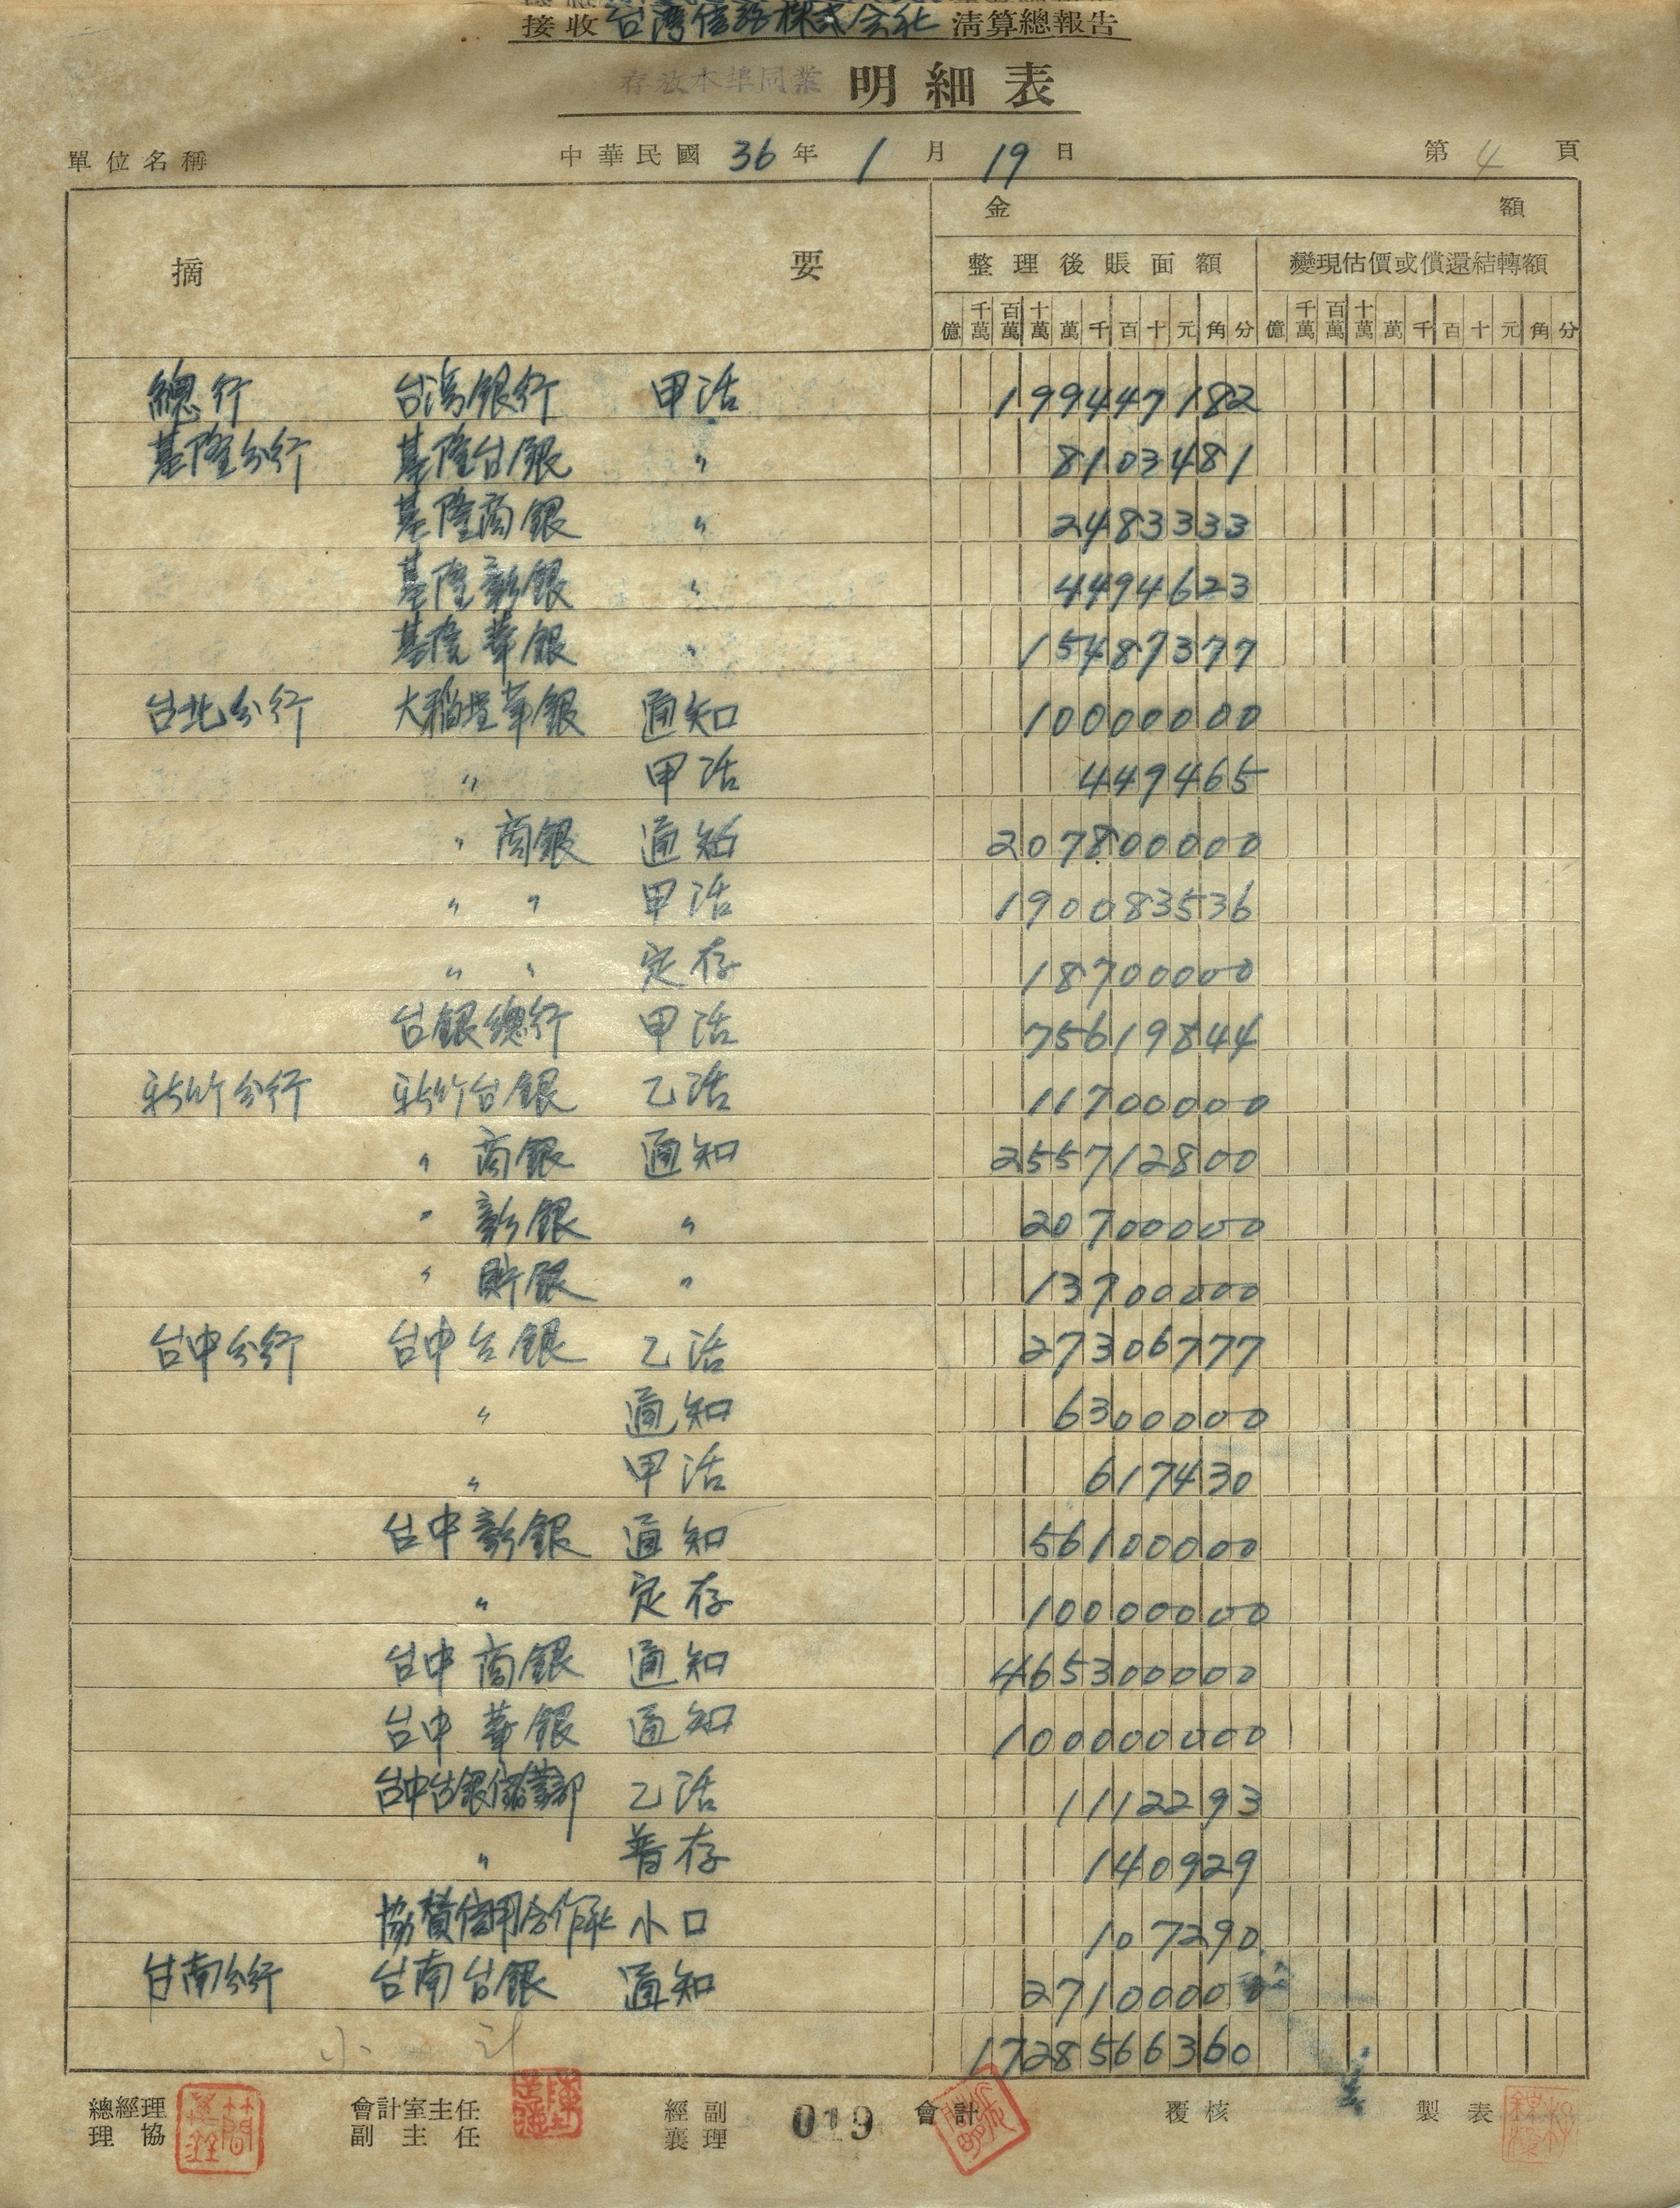 接收 台湾信託株式会社 清算總報告
存放本埠同業 明細表
單位名稱 中華民國 36 年 1 月 19 日 第 4 頁
摘 要 金 額
整理後賬面額 變現估價或償還結轉額
億 千萬 百萬 十萬 萬 千 百 十 元 角 分 億 千萬 百萬 十萬 萬 千 百 十 元 角 分
總行 台湾銀行 甲活 199447182
基隆分行 基隆台銀 〃 8103481
基隆商銀 〃 2483333
基隆彰銀 〃 4494623
基隆華銀 〃 15487377
台北分行 大稻埕華銀 通知 10000000
〃 甲活 449465
〃 商銀 通知 207800000
〃 〃 甲活 190083536
〃 〃 定存 18700000
台銀總行 甲活 75619844
新竹分行 新竹台銀 乙活 11700000
〃 商銀 通知 255712800
〃 彰銀 〃 20700000
〃 貯銀 〃 13700000
台中分行 台中台銀 乙活 27306777
〃 通知 6300000
〃 甲活 617430
台中彰銀 通知 56100000
〃 定存 10000000
台中商銀 通知 465300000
台中華銀 通知 100000000
台中台銀儲蓄部 乙活 1112293
〃 普存 140929
協贊信用合作社 小口 107290
台南分行 台南台銀 通知 27100000
小計 1728566360
總經理 會計室主任 經副 019 會計 覆核 製表
理協 副主任 襄理